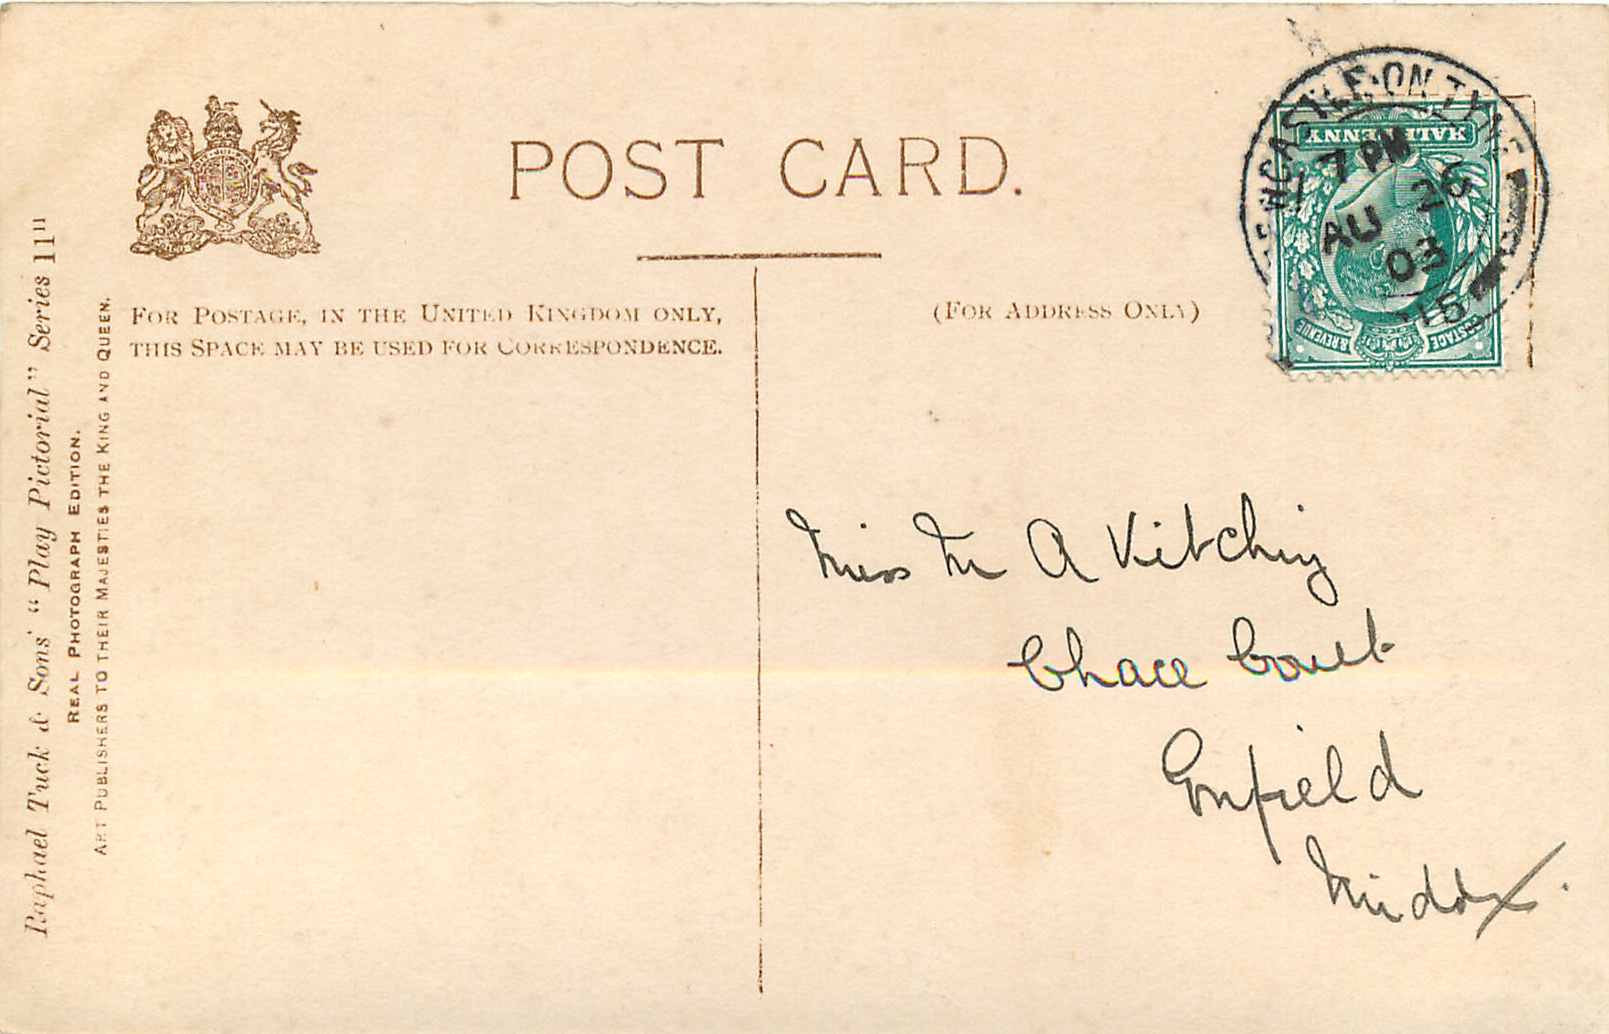 POST CARD.
FOR POSTAGE, IN THE UNITED KINGDOM ONLY,
THIS SPACE MAY BE USED FOR CORRESPONDENCE.
(FOR ADDRESS ONLY)
Raphael Tuck & Sons' "Play Pictorial" Series 11"
REAL PHOTOGRAPH EDITION.
ART PUBLISHERS TO THEIR MAJESTIES THE KING AND QUEEN.
HALFPENNY
POSTAGE & REVENUE
NEWCASTLE-ON-TYNE
7 PM
AU 26
03
Miss M A Kitching
Chace Court
Enfield
Middx.